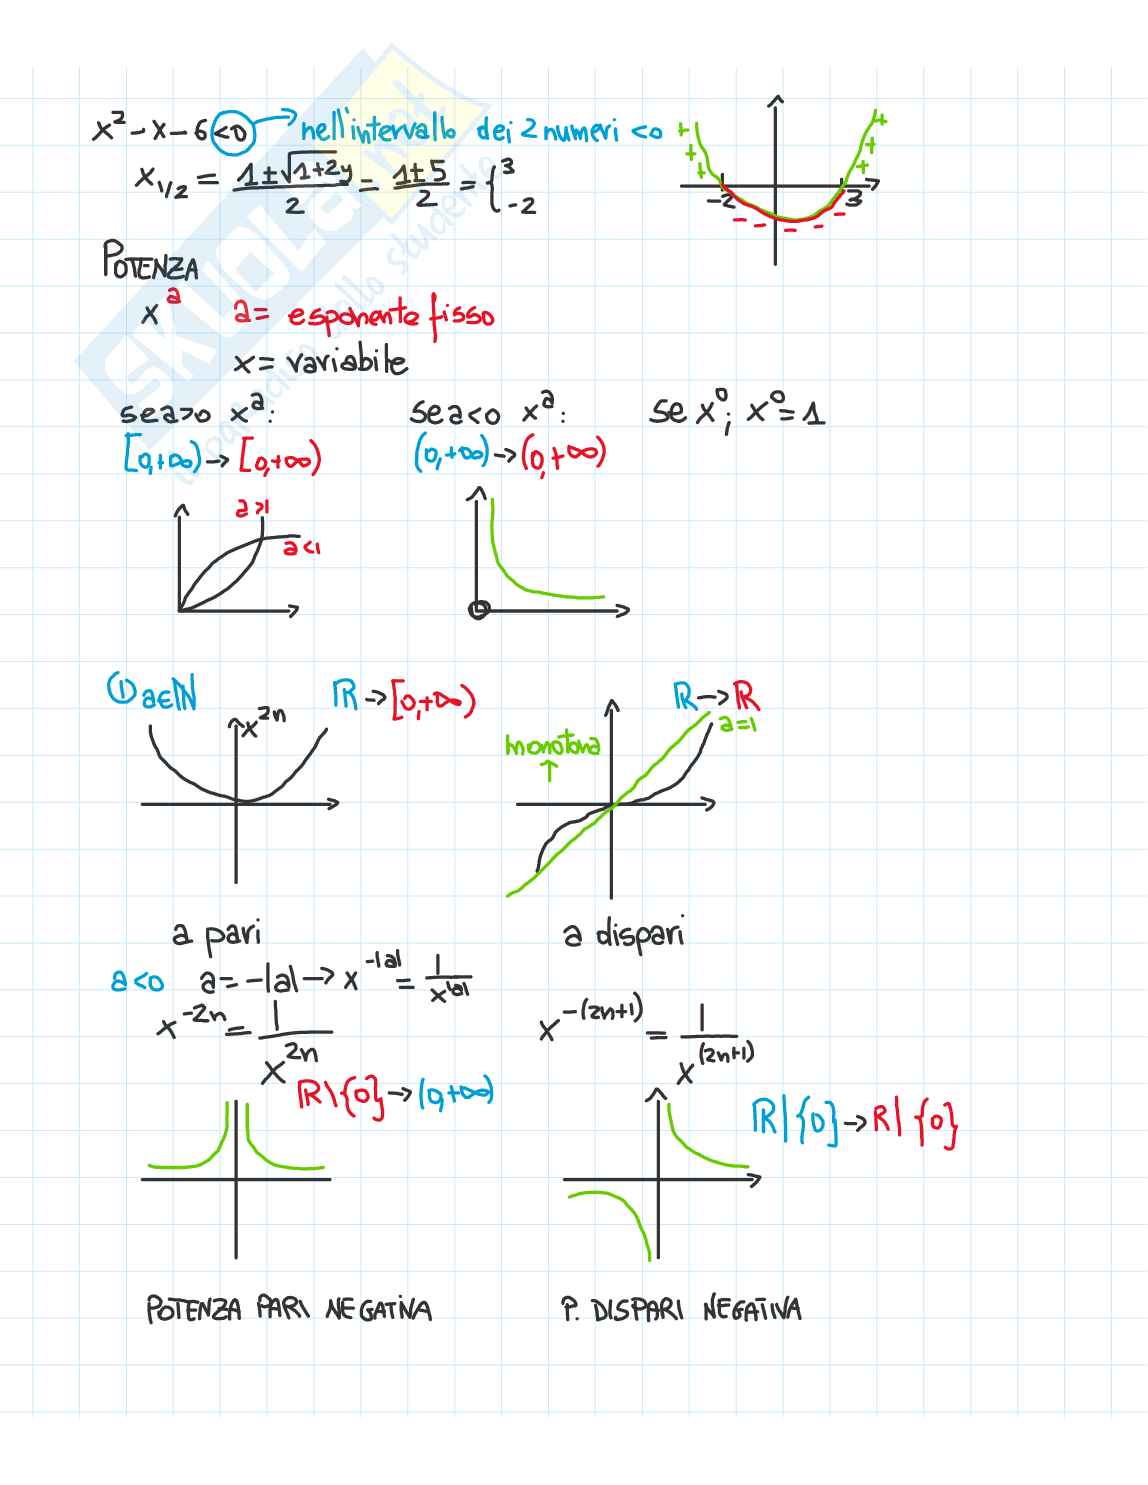 x² - x - 6 <0 → nell'intervallo dei 2 numeri <0
x₁/₂ = 1±√1+24 / 2 = 1±5 / 2 = { 3 -2
+ + + + + +
-2 3
- - - - -
POTENZA
xᵃ a = esponente fisso
x = variabile
se a>0 xᵃ: se a<0 xᵃ: se x⁰; x⁰=1
[0,+∞) → [0,+∞) (0,+∞) → (0,+∞)
a>1
a<1
① a∈ℕ ℝ → [0,+∞) ℝ → ℝ
x²ⁿ a=1
monotona
↑
a pari a dispari
a<0 a = -|a| → x^-|a| = 1/x^|a|
x^-2n = 1/x^2n x^-(2n+1) = 1/x^(2n+1)
ℝ\{0} → (0,+∞) ℝ|{0} → ℝ|{0}
POTENZA PARI NEGATIVA P. DISPARI NEGATIVA
SKUOLA.net